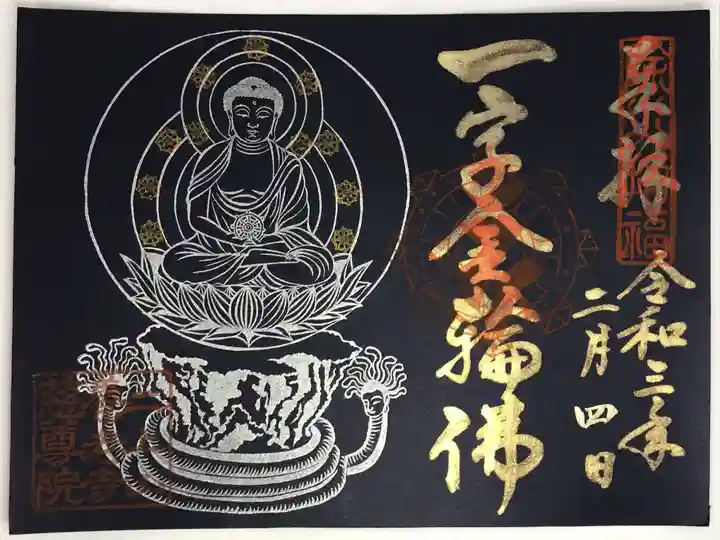 奉拝
令和三年
二月四日
一字金輪佛
慈尊院